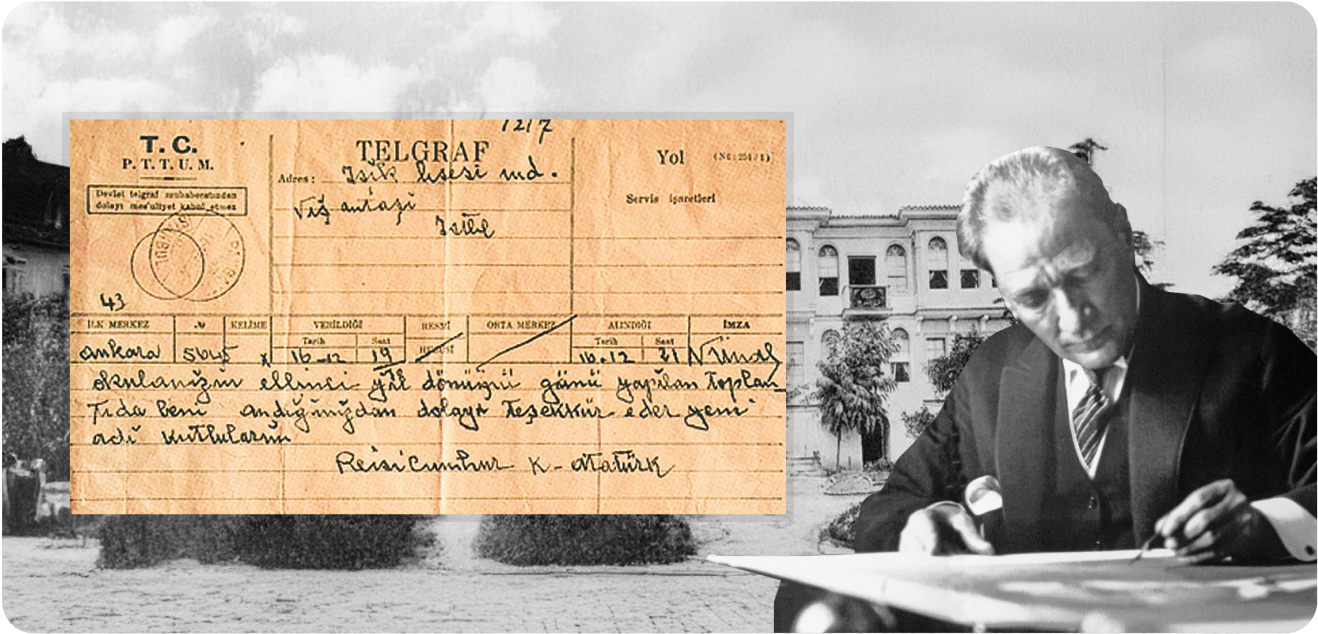 1217
T. C.
P. T. T. U. M.
Devlet telgraf muhaberatından
dolayı mes'uliyet kabul etmez
43
TELGRAF
Adres: Işık lisesi md.
Nişantaşı
İstbl
Yol (No: 251/1)
Servis işaretleri
İLK MERKEZ № KELİME VERİLDİĞİ RESMİ ORTA MERKEZ ALINDIĞI İMZA
Tarih Saat HUSUSİ Tarih Saat
ankara 5645 x 16-12 19 16-12 21
okulanızın ellinci yıl dönümü günü yapılan toplan
tıda beni andığınızdan dolayı teşekkür eder yeni
adı kutlularım
Reisicumhur K-Atatürk